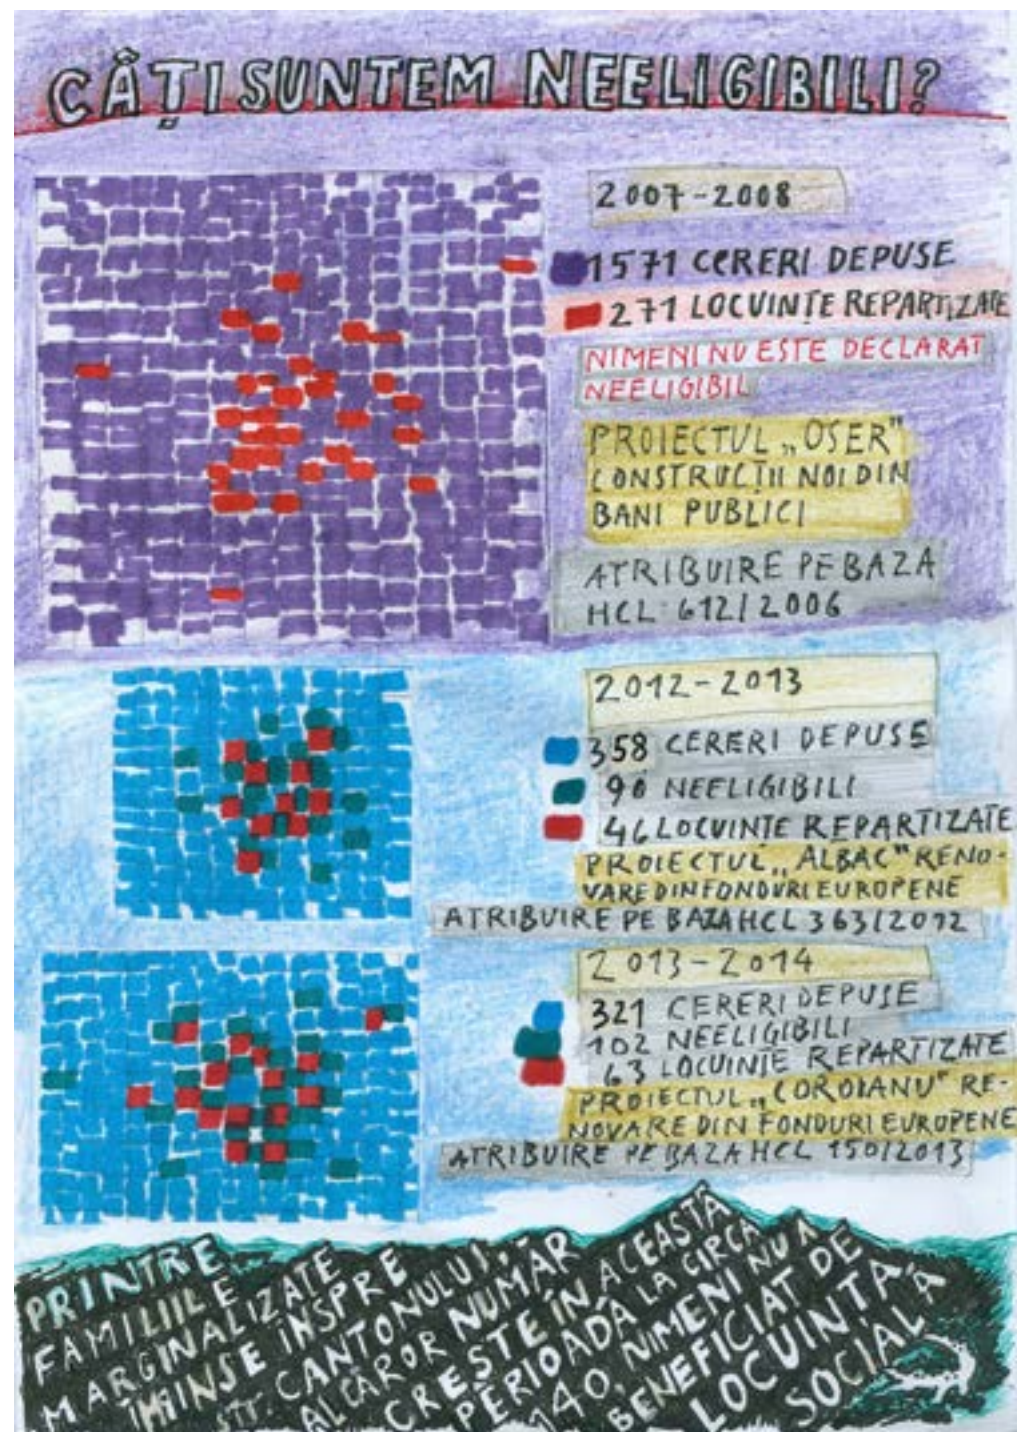 CÂȚI SUNTEM NEELIGIBILI?
2007-2008
1571 CERERI DEPUSE
271 LOCUINȚE REPARTIZATE
NIMENI NU ESTE DECLARAT
NEELIGIBIL
PROIECTUL „OSER"
CONSTRUCȚII NOI DIN
BANI PUBLICI
ATRIBUIRE PE BAZA
HCL 612/2006
2012-2013
358 CERERI DEPUSE
90 NEELIGIBILI
46 LOCUINȚE REPARTIZATE
PROIECTUL „ALBAC" RENO-
VARE DIN FONDURI EUROPENE
ATRIBUIRE PE BAZA HCL 363/2012
2013-2014
321 CERERI DEPUSE
102 NEELIGIBILI
63 LOCUINȚE REPARTIZATE
PROIECTUL „COROIANU" RE-
NOVARE DIN FONDURI EUROPENE
ATRIBUIRE PE BAZA HCL 150/2013
PRINTRE
FAMILIILE
MARGINALIZATE
ÎMPINSE ÎNSPRE
STR. CANTONULUI,
AL CĂROR NUMĂR
CREȘTE ÎN ACEASTĂ
PERIOADĂ LA CIRCA
140, NIMENI NU A
BENEFICIAT DE
LOCUINȚĂ
SOCIALĂ